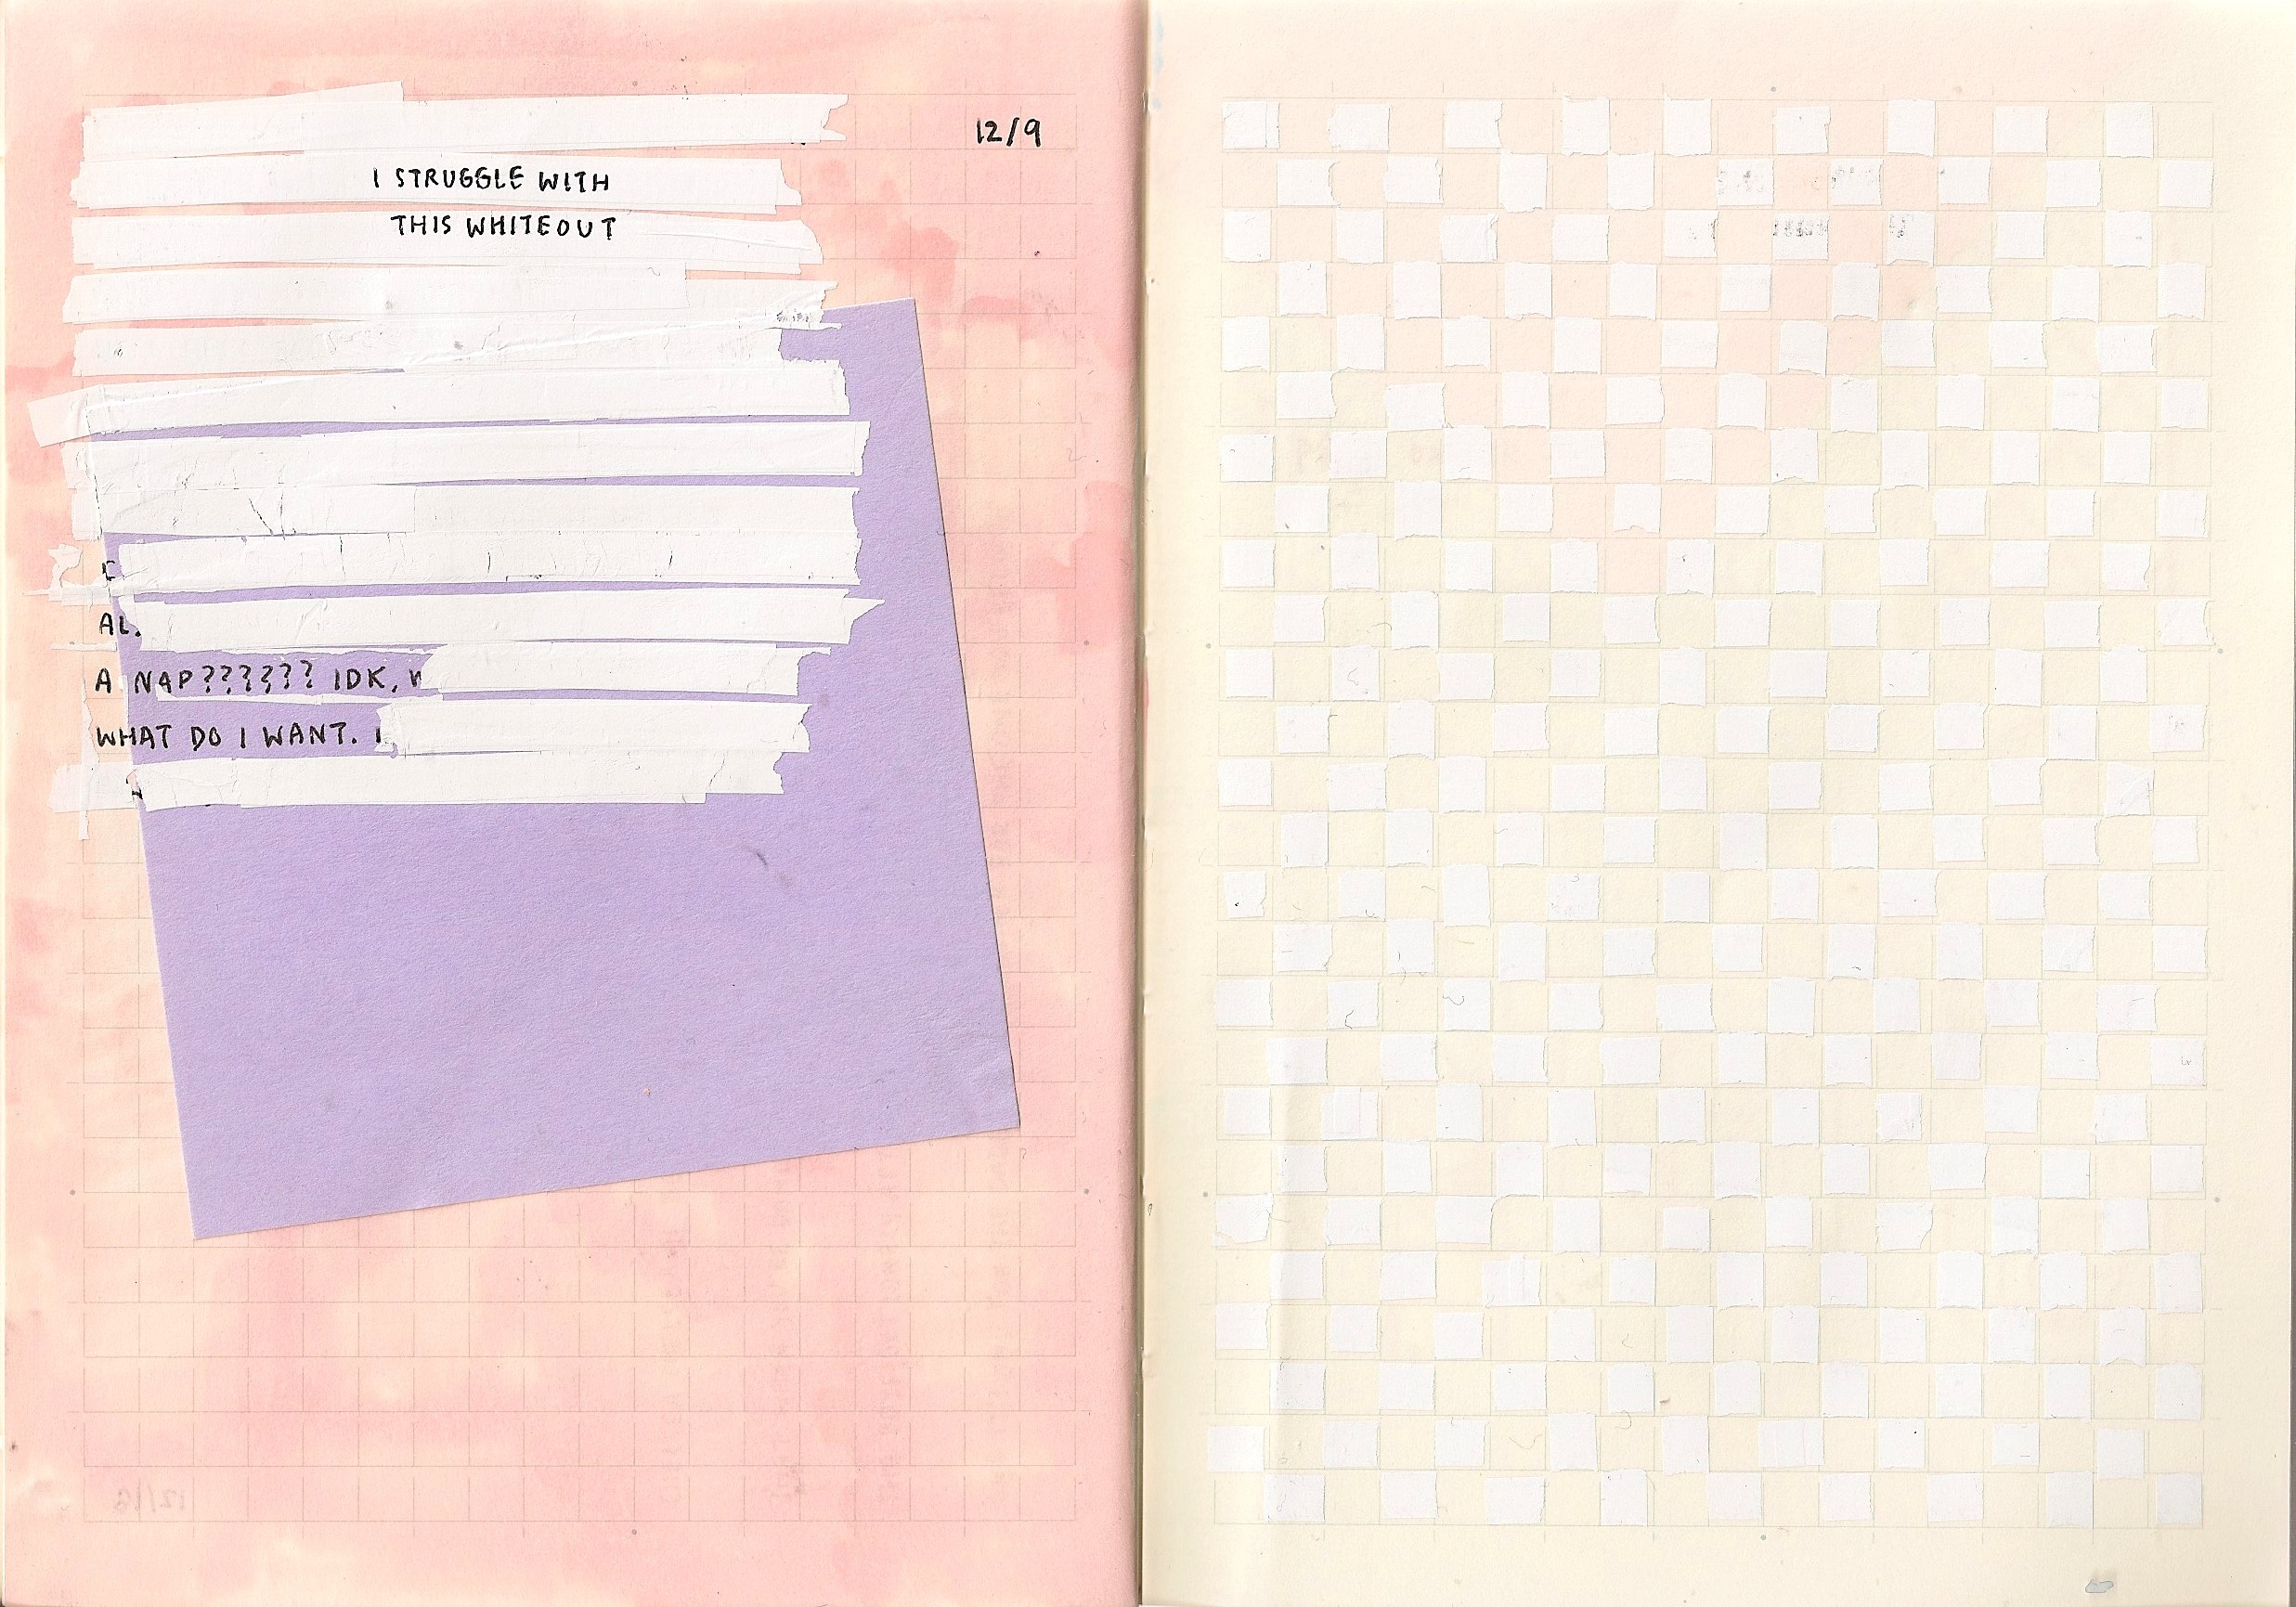 12/9
I STRUGGLE WITH
THIS WHITEOUT
A NAP?????? IDK.
WHAT DO I WANT. I